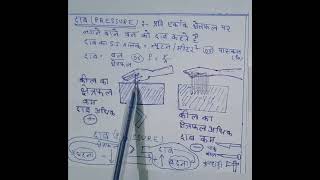 दाब (PRESSURE) :- प्रति एकांक क्षेत्रफल पर
लगने वाले बल को दाब कहते हैं
दाब का SI मात्रक = न्यूटन/मीटर² या पास्कल
(Pa)
दाब = बल
क्षेत्रफल
कील का
क्षेत्रफल
कम
दाब अधिक
कील का
क्षेत्रफल
अधिक
दाब कम
दाब